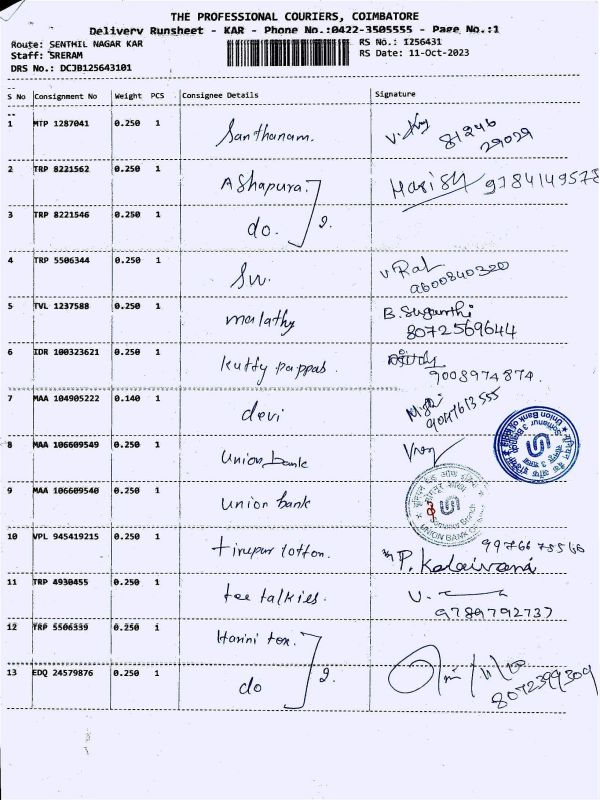 THE PROFESSIONAL COURIERS, COIMBATORE
Delivery Runsheet - KAR - Phone No.:0422-3505555 - Page No.:1
Route: SENTHIL NAGAR KAR RS No.: 1256431
Staff: SRERAM RS Date: 11-Oct-2023
DRS No.: DCJB125643101
S No Consignment No Weight PCS Consignee Details Signature
1 MTP 1287041 0.250 1 Santhanam. 81246
29029
2 TRP 8221562 0.250 1 Ashapura. Harish 9184149578
3 TRP 8221546 0.250 1 do. 2.
4 TRP 5506344 0.250 1 V Ral
9600840320
5 TVL 1237588 0.250 1 malathy B. Suganthi
8072569644
6 IDR 100323621 0.250 1 kutty pappas
9008974874.
7 MAA 104905222 0.140 1 devi
9047613555
8 MAA 106609549 0.250 1 union bank
9 MAA 106609540 0.250 1 union bank
UNION BANK
10 VPL 945419215 0.250 1 tirupur cotton. P. Kalaivani
11 TRP 4930455 0.250 1 tee talkies.
9789792737
12 TRP 5506339 0.250 1 Harini tex.
13 EDQ 24579876 0.250 1 do 2. 8072399309